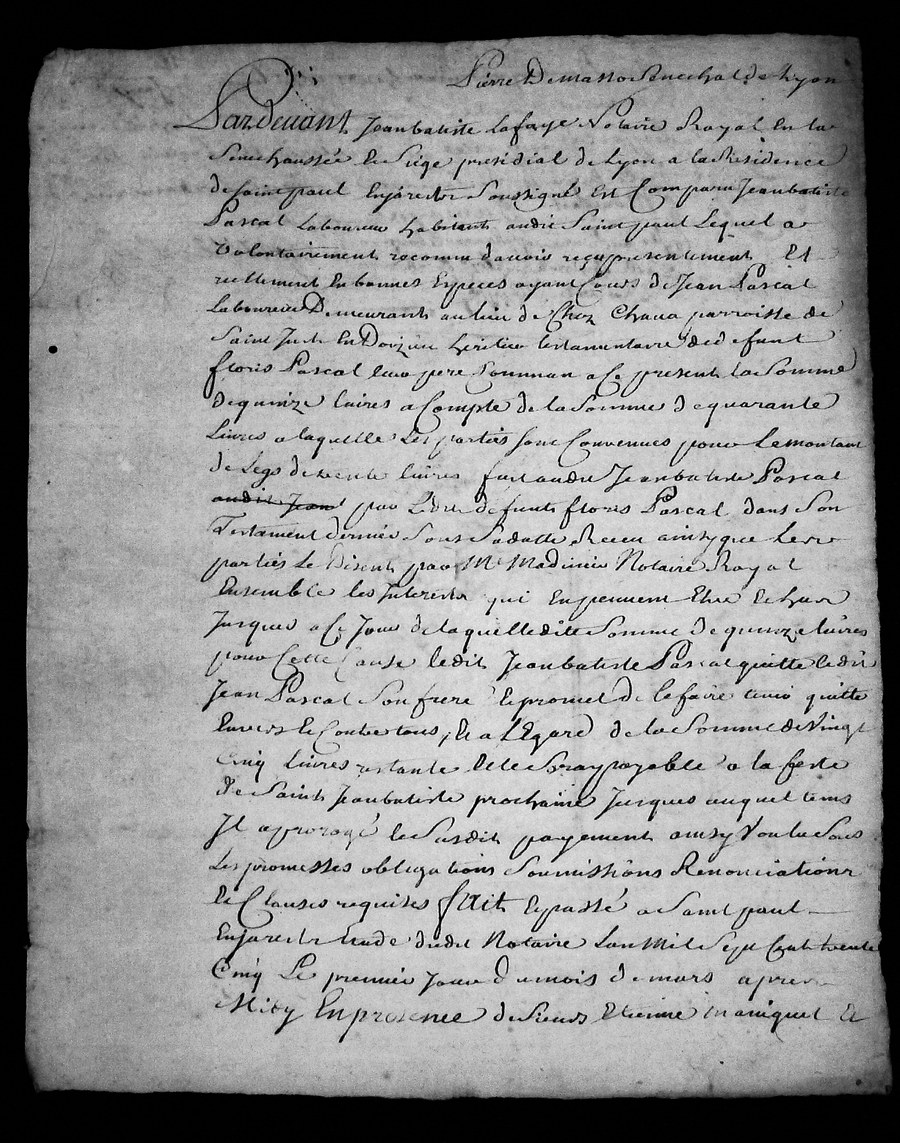 Pierre Demasso Senechal de Lyon
Pardevant Jeanbatiste Lafaye Notaire Royal En la
Senechaussée Et Siége presidial de Lyon a la Residence
de saint paul Enjarestz Soussigné Est Comparu Jeanbatiste
Pascal Laboureur habitant audit Saint paul Lequel a
volontairement reconnu d'avoir reçu presentement Et
reellement En bonnes Especes ayant Cours de Jean Pascal
Laboureur Demeurant au lieu de Chez Chava parroisse de
Saint Just En Doizieu heritier testamentaire de defunt
floris Pascal leur pere Commun a Ce present la Somme
de quinze livres a Compte de la Somme de quarante
Livres a laquelle Les parties sont Convenues pour Le montant
de Legs de trente livres fait audit Jeanbatiste Pascal
audit Jean par Ledit defunt floris Pascal dans Son
Testament dernier Sous Sa datte Receu ainsy que Les
parties Le Disent par Me Madinier Notaire Royal
Ensemble les Interests qui En peuvent Etre Echus
Jusques a Ce Jour de laquelle dite Somme de quinze livres
pour Cette Cause ledit Jeanbatiste Pascal quitte ledit
Jean Pascal Son frere Et promet de le faire tenir quitte
Envers Et Contre tous, Et a L'Egard de la Somme de Vingt
Cinq Livres restante Elle Sera payable a la feste
de Saint Jeanbatiste prochaine Jusques auquel tems
Il a prorogé le Susdit payement ainsy Voulu Sous
Les promesses obligations Soumissions Renonciations
Et Clauses requises fait Et passé a Saint paul
Enjarestz Etude dudit Notaire L'an Mil Sept Cent trente
Cinq Le premier Jour du mois de mars apres
Midy En presence de Sieurs Etienne Maniquet Et